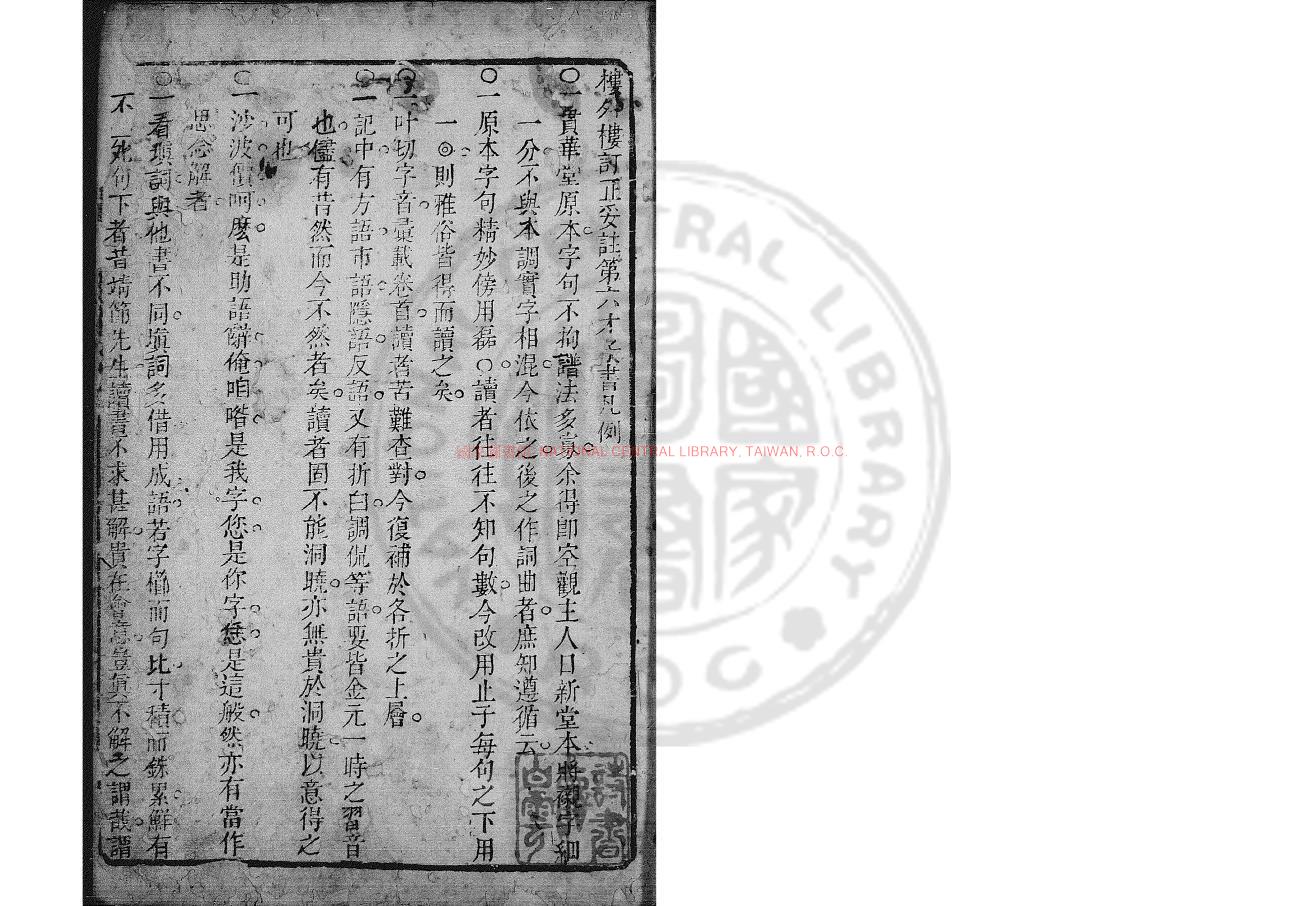 樓外樓訂正妥註第六才子書凡例
○一貫華堂原本字句不拘譜法多寡余得卽空觀主人口新堂本將襯字細
一分不與本調實字相混今依之後之作詞曲者庶知遵循云
○一原本字句精妙傍用磊○讀者往往不知句數今改用止于每句之下用
一◎則雅俗皆得而讀之矣
○一叶切字音彙載卷首讀者苦難查對今復補於各折之上層
○一記中有方語市語隱語反語又有折白調侃等語要皆金元一時之習音
也儘有昔然而今不然者矣讀者固不能洞曉亦無貴於洞曉以意得之
可也
○一沙波價呵麽是助語辭俺咱喒是我字您是你字恁是這般然亦有當作
思念解者
○一看塡詞與他書不同塡詞多借用成語若字櫛而句比寸積而銖累鮮有
不死句下者昔靖節先生讀書不求甚解貴在會意豈眞不解之謂哉謂
國家圖書館 NATIONAL CENTRAL LIBRARY, TAIWAN, R.O.C.